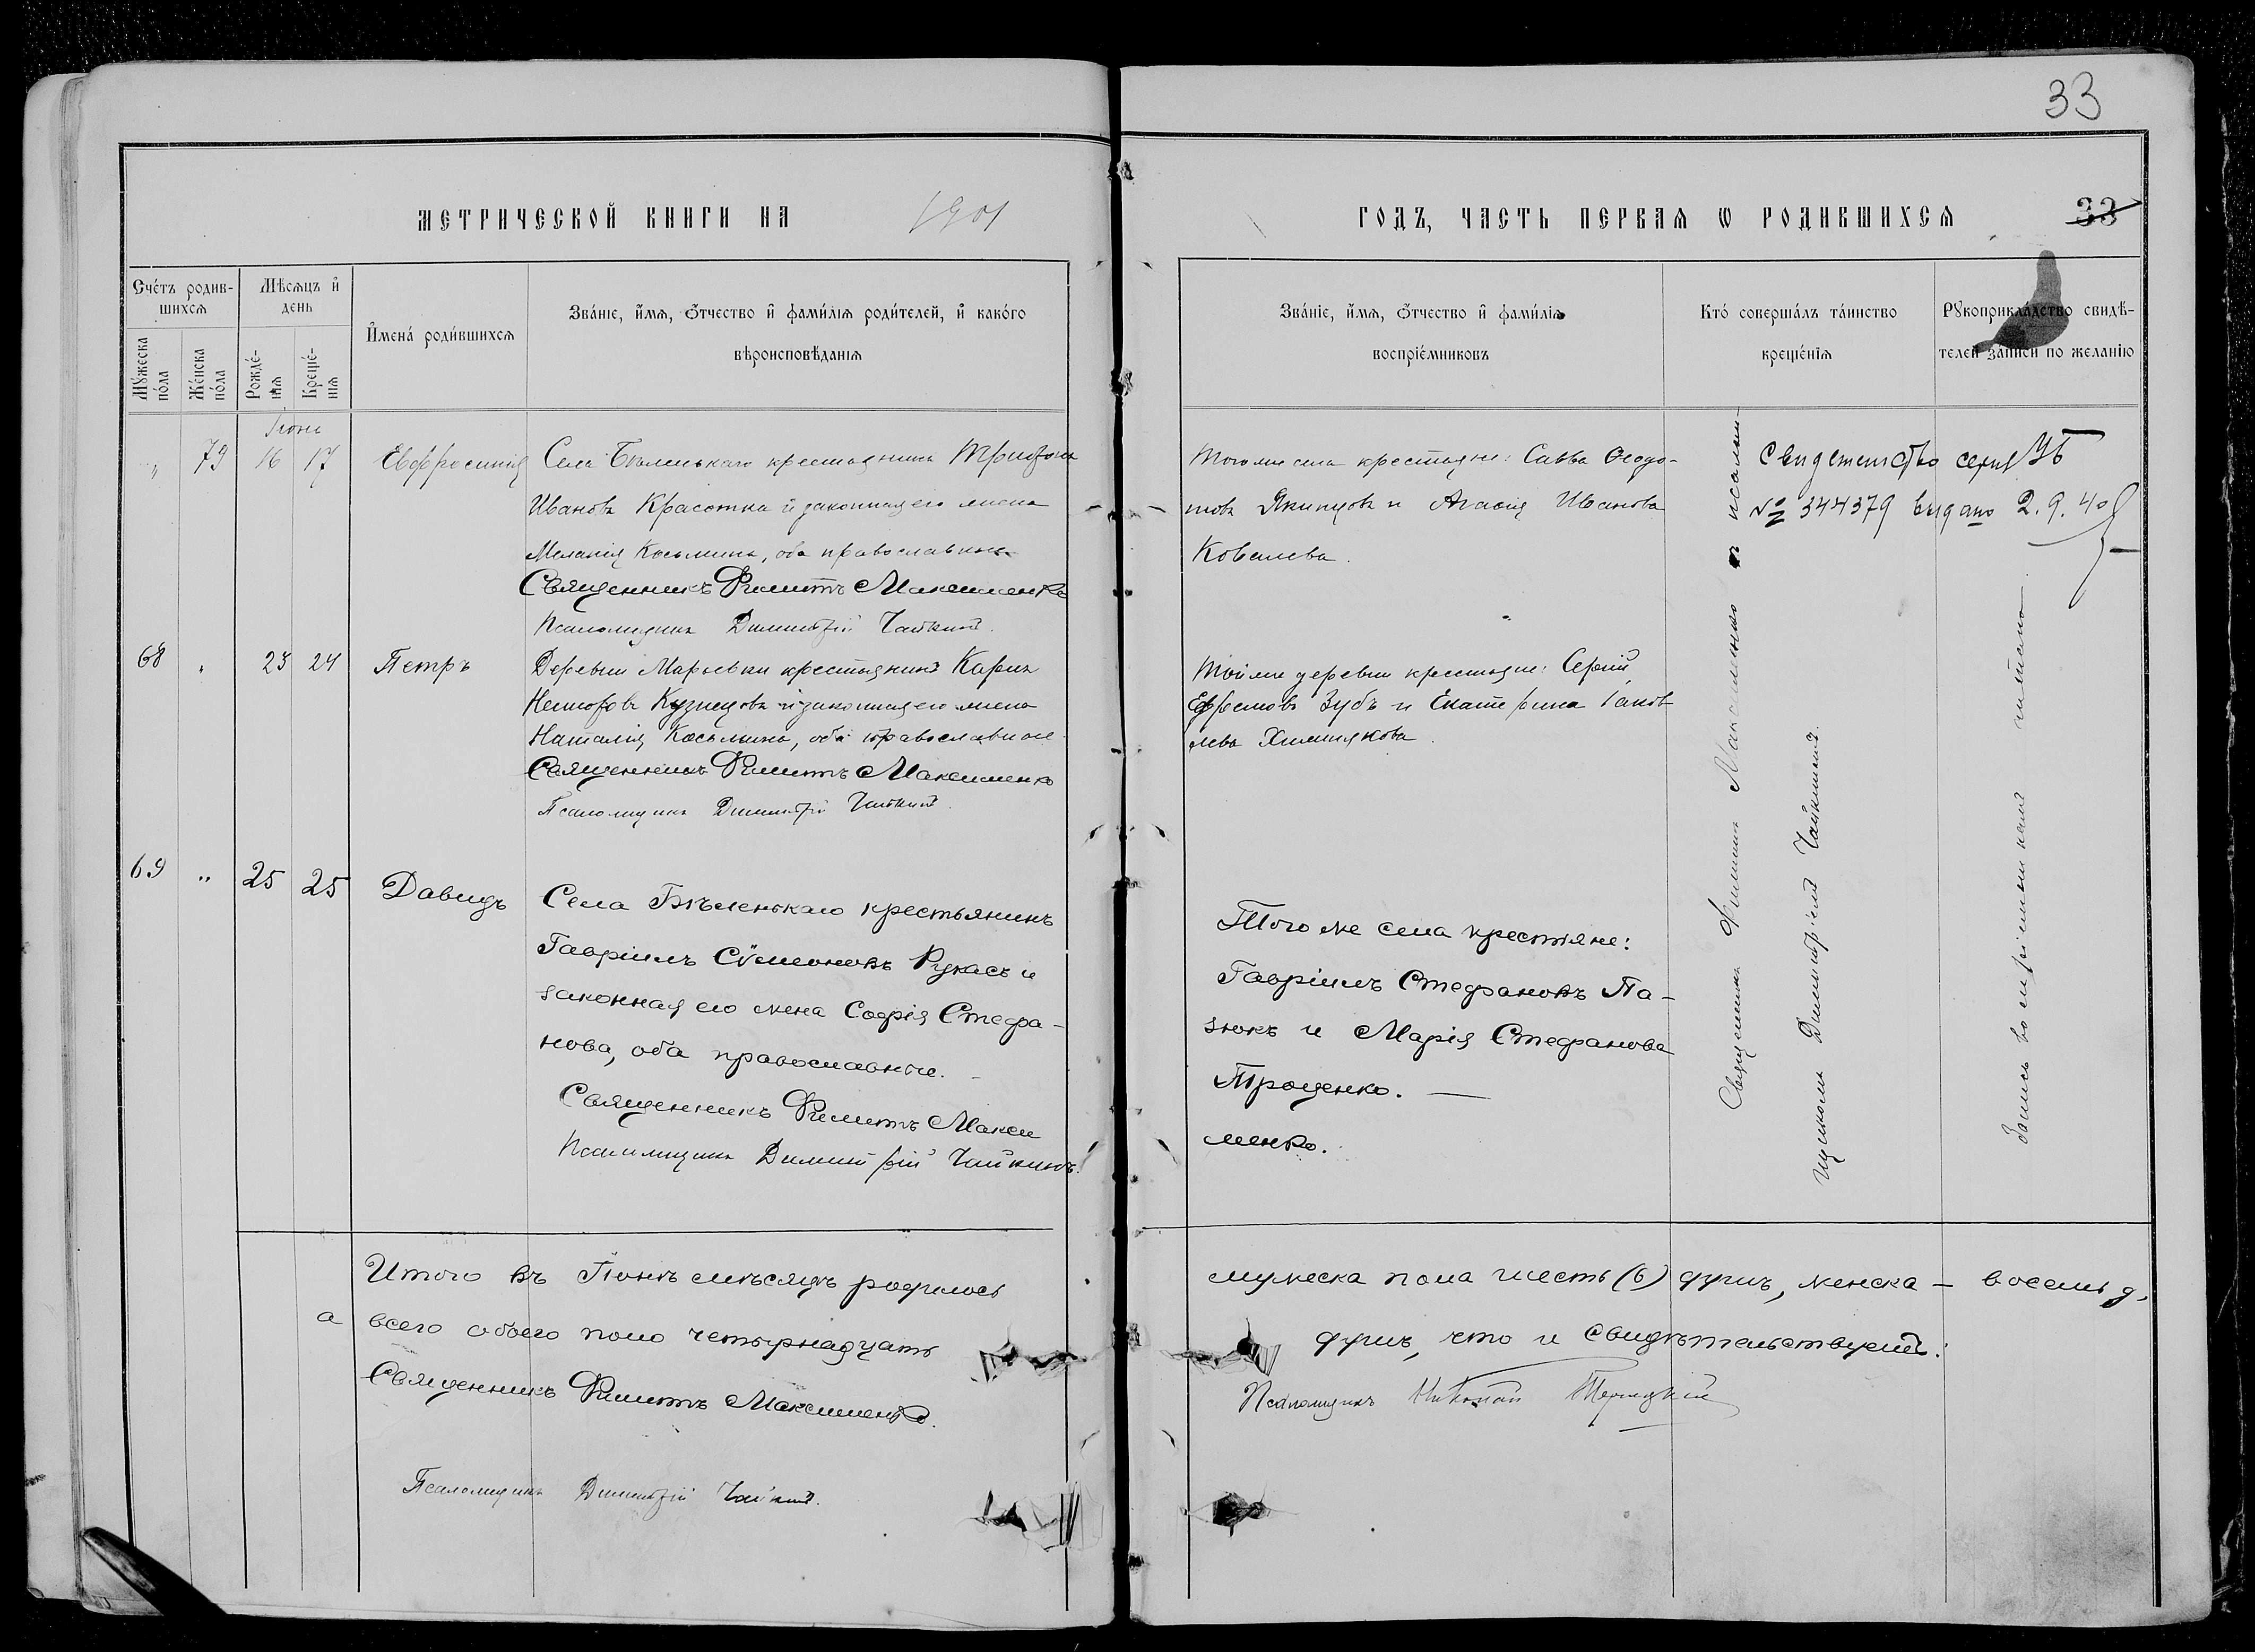 33
МЕТРИЧЕСКОЙ КНИГИ НА 1901
ГОДЪ, ЧАСТЬ ПЕРВАЯ Ѡ РОДИВШИХСЯ 33
Счетъ родив-
шихся
Мѣсяцъ и
день
Мужеска пола
Женска пола
Рожде-
нія
Креще-
нія
Имена родившихся
Званіе, имя, отчество и фамилія родителей, и какого
вѣроисповѣданія
Званіе, имя, отчество и фамилія
воспріемниковъ
Кто совершалъ таинство
крещенія
Рукоприкладство свидѣ-
телей записи по желанію
Іюнь
" 79 16 17 Евфросинія
Села Бѣленькаго крестьянинъ Трифонъ
Ивановъ Красотка и законная его жена
Меланія Косьмина, оба православные
Священникъ Филиппъ Максименко
Псаломщикъ Димитрій Чайкинъ.
Тогоже села крестьяне: Савва Ѳеодо-
товъ Якимцовъ и Агаѳія Иванова
Ковалева.
Свидетельство серия УБ
№ 344379 выдано 2.9.40
68 " 23 24 Петръ
Деревни Марьевки крестьянинъ Карпъ
Несторовъ Кузнецовъ и законная его жена
Наталія Косьмина, оба православные
Священникъ Филиппъ Максименко
Псаломщикъ Димитрій Чайкинъ.
Тойже деревни крестьяне: Сергій
Ефремовъ Зубъ и Екатерина Іаков
лева
69 " 25 25 Давидъ
Села Бѣленькаго крестьянинъ
Гавріилъ Сѵмеоновъ Рукасъ и
законная его жена Софія Стефа-
нова, оба православные.
Священникъ Филиппъ Макси
Псаломщикъ Димитрій Чайкинъ.
Того же села крестьяне:
Гавріилъ Стефановъ Па-
зюкъ и Марія Стефанова
Троценко.
менко.
Священникъ Филиппъ Максименко съ псалом-
щикомъ Димитріемъ Чайкинымъ.
Запись воспріемниками читана
Итого въ Іюнѣ мѣсяцѣ родилось
мужеска пола шесть (6) душъ, женска — восемь д,
а всего обоего пола четырнадцать
душъ, что и свидѣтельствуемъ:
Священникъ Филиппъ Максименко.
Псаломщикъ Николай
Псаломщикъ Димитрій Чайкинъ.